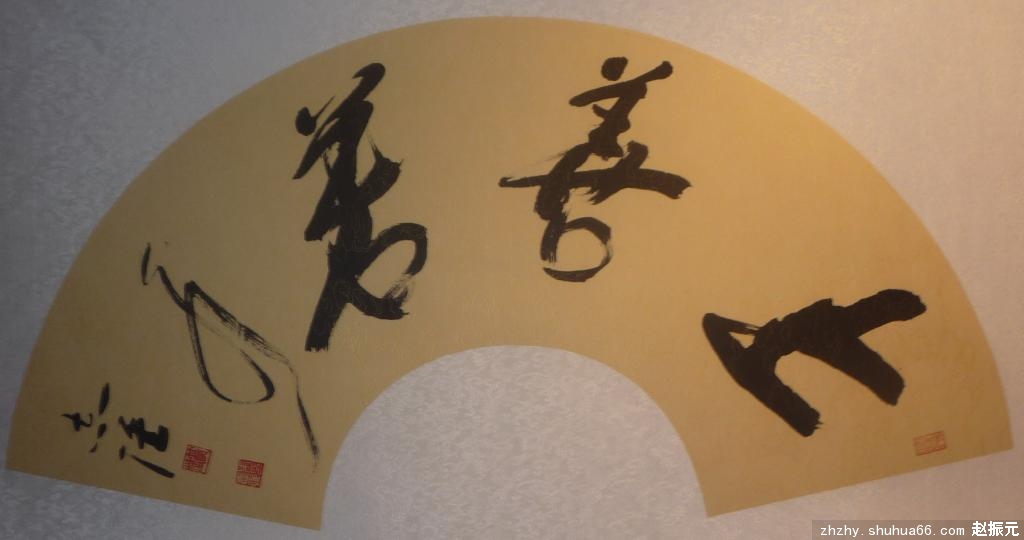 上善若水
zhzhy.shuhua66.com 赵振元